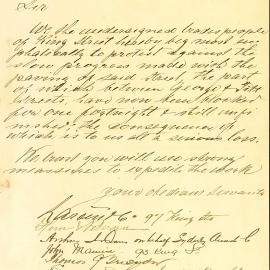 Sir
We the undersigned tradespeople
of King Street hereby beg most em
phatically to protest against the
slow progress made with the
paving of said Street, the part
of which between George & Pitt
Streets, have now been blocked
per one fortnight & still unfi
nished; the consequence of
which is to us all a serious loss.
We trust you will use strong
measures to expedite the work
Your obedient servants
& Co 97 King St
Arthur on behalf Sydney
John King St
Thomas